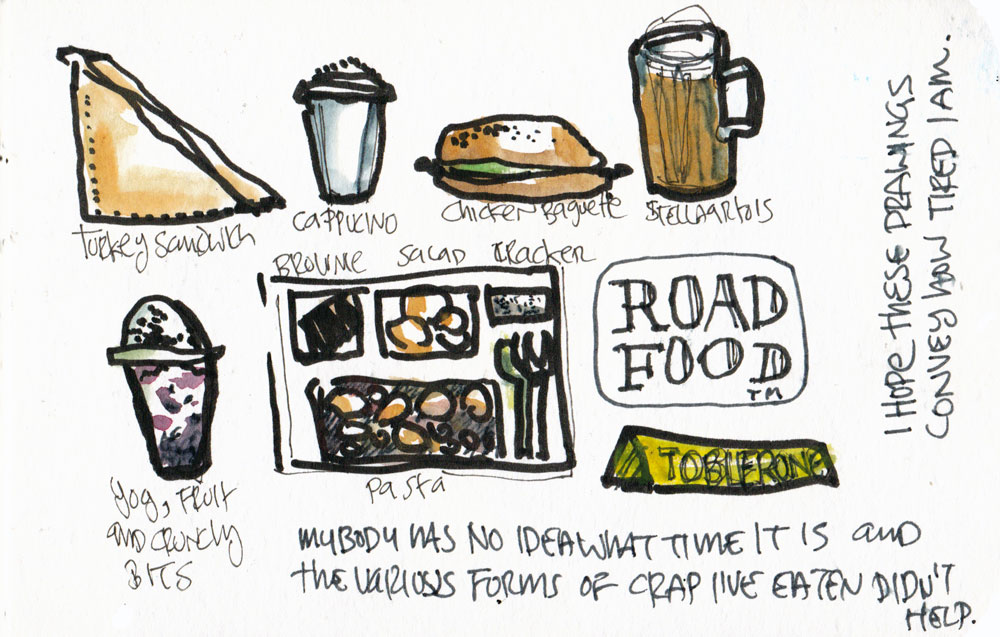 Turkey Sandwich
CAPPUCINO
Chicken Baguette
STELLA ARTOIS
I HOPE THESE DRAWINGS
CONVEY HOW TIRED I AM.
BROWNIE
SALAD
CRACKER
ROAD
FOOD
TM
TOBLERONE
Pasta
Yog, FRUIT
AND CRUNCHY
BITS
MY BODY HAS NO IDEA WHAT TIME IT IS and
THE VARIOUS FORMS OF CRAP I'VE EATEN DIDN'T
HELP.